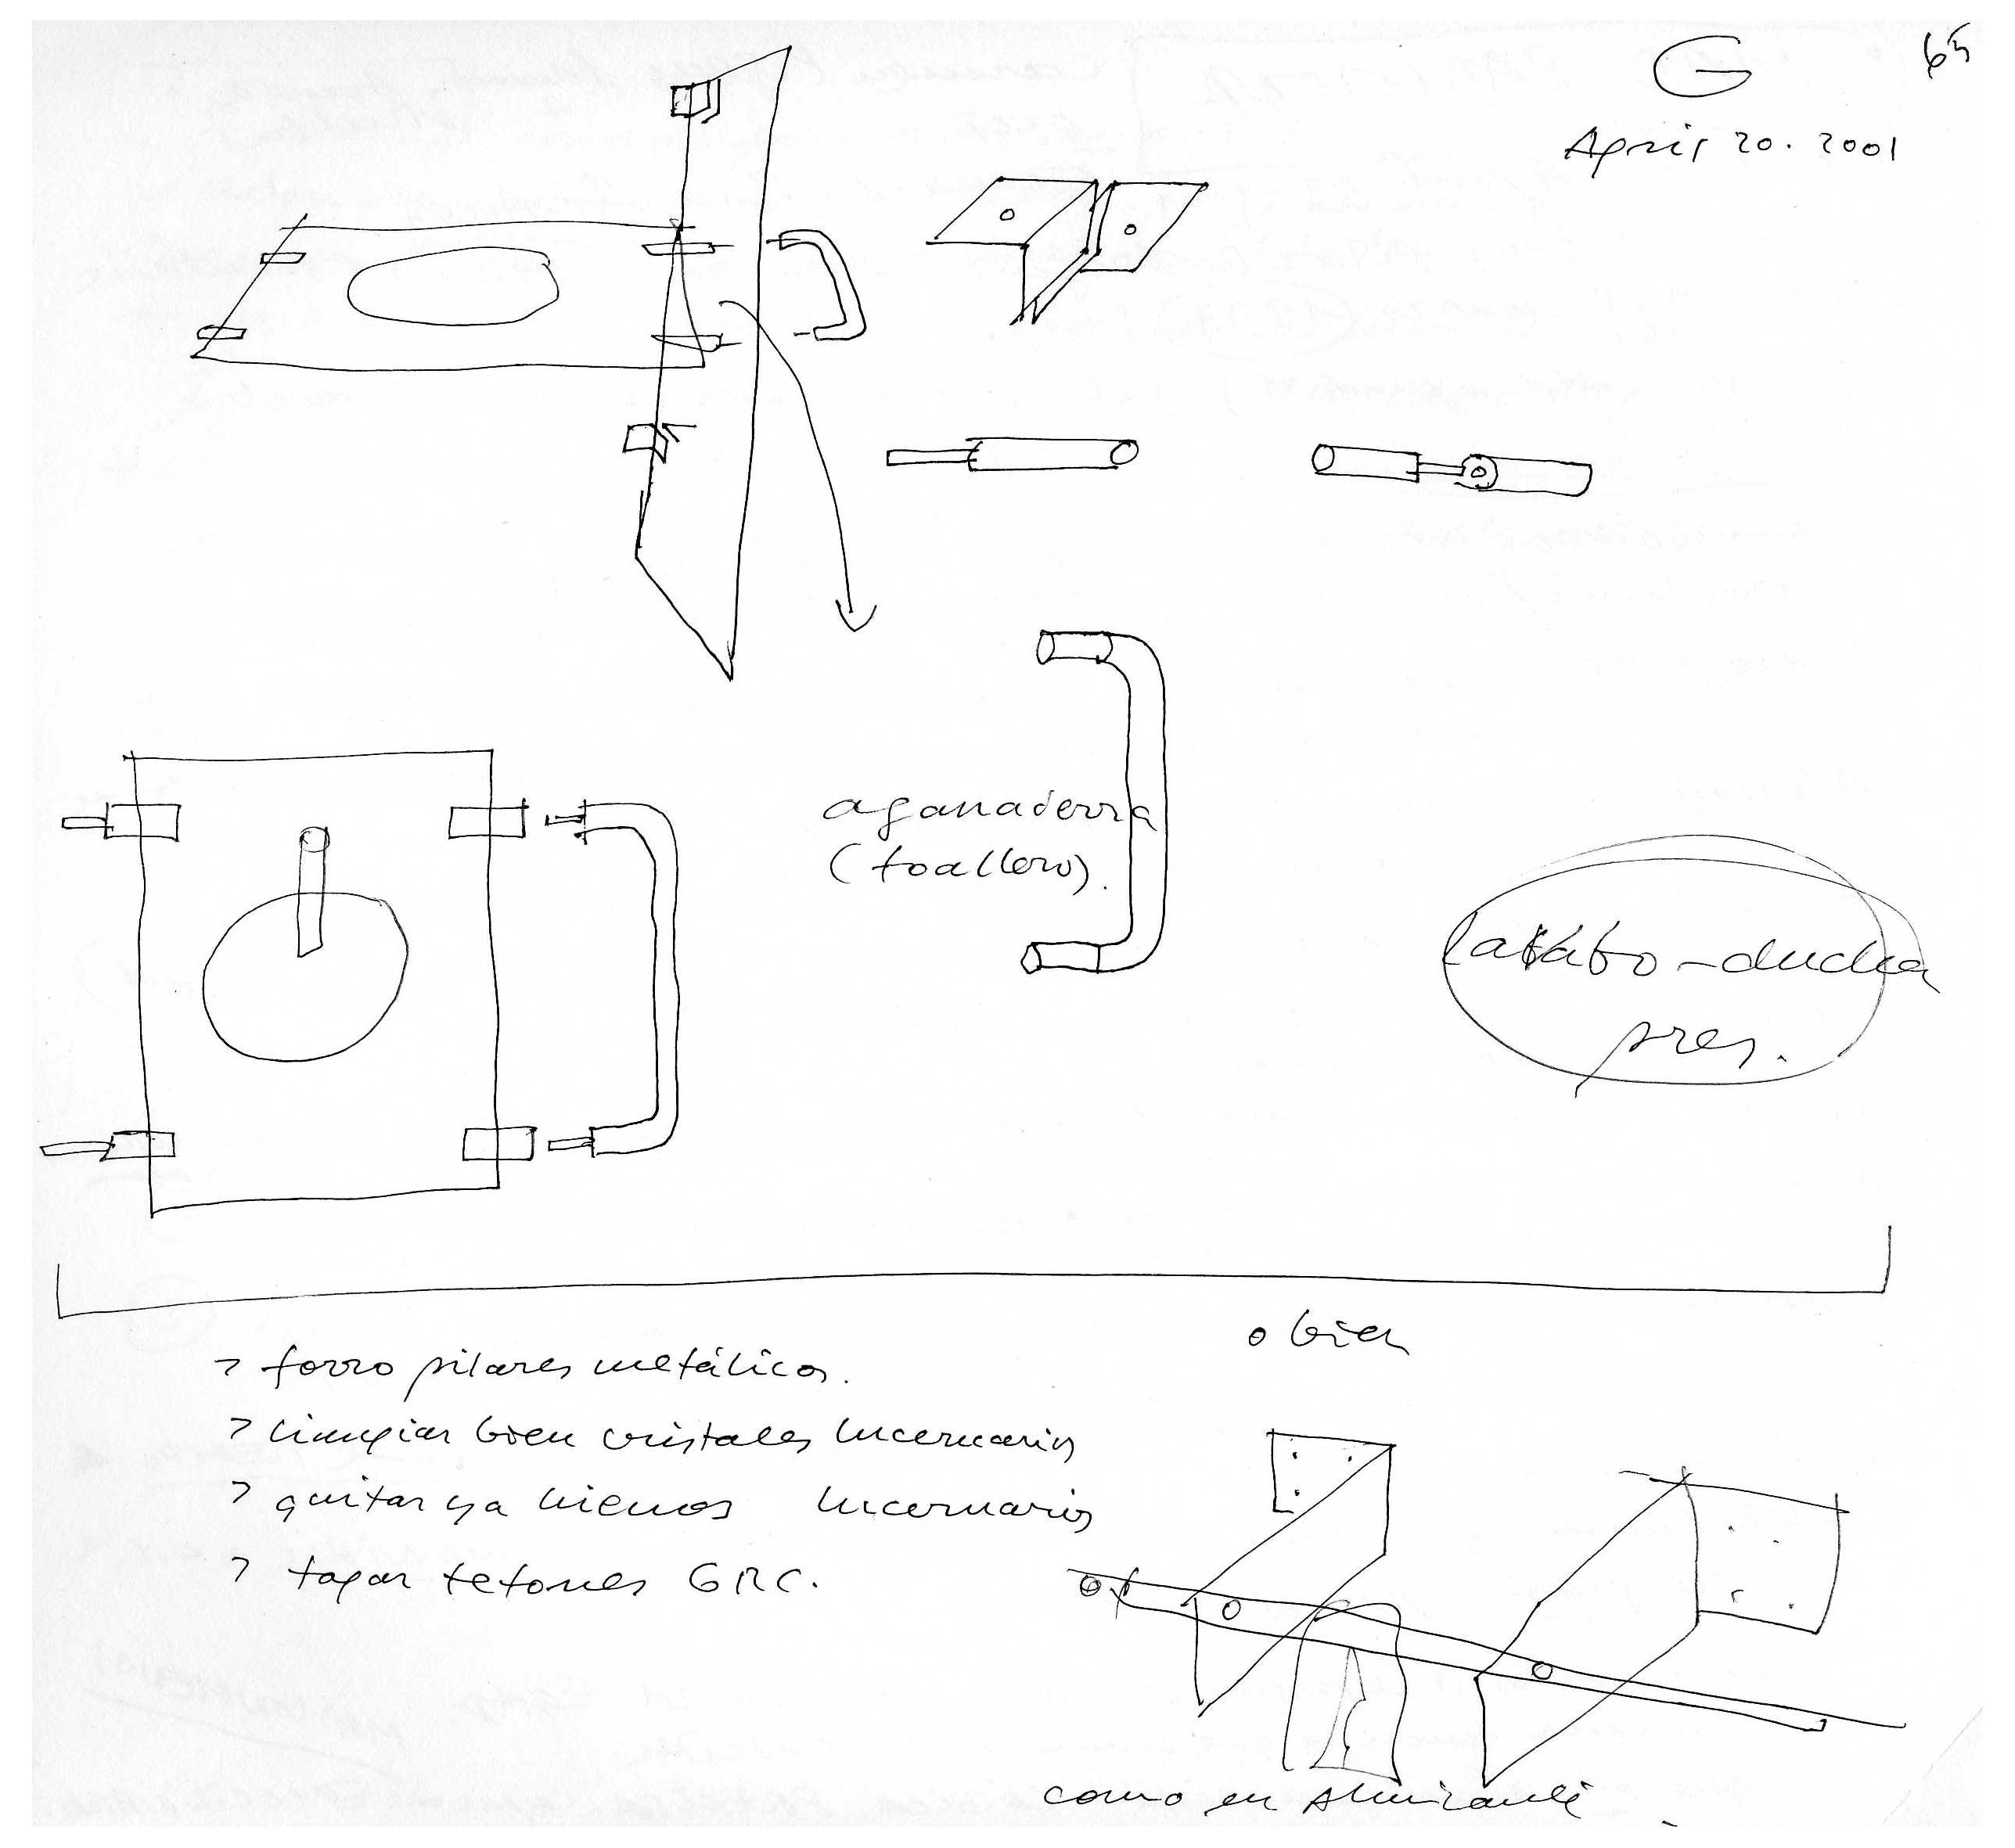 G
65
April 20. 2001
agarraderra
(toallero).
lavabo-ducha
pres.
> forro pilares metálicos.
> limpiar bien cristales lucernarios
> quitar ya hierros lucernarios
> tapar tetones GRC.
o bien
como en Almirante